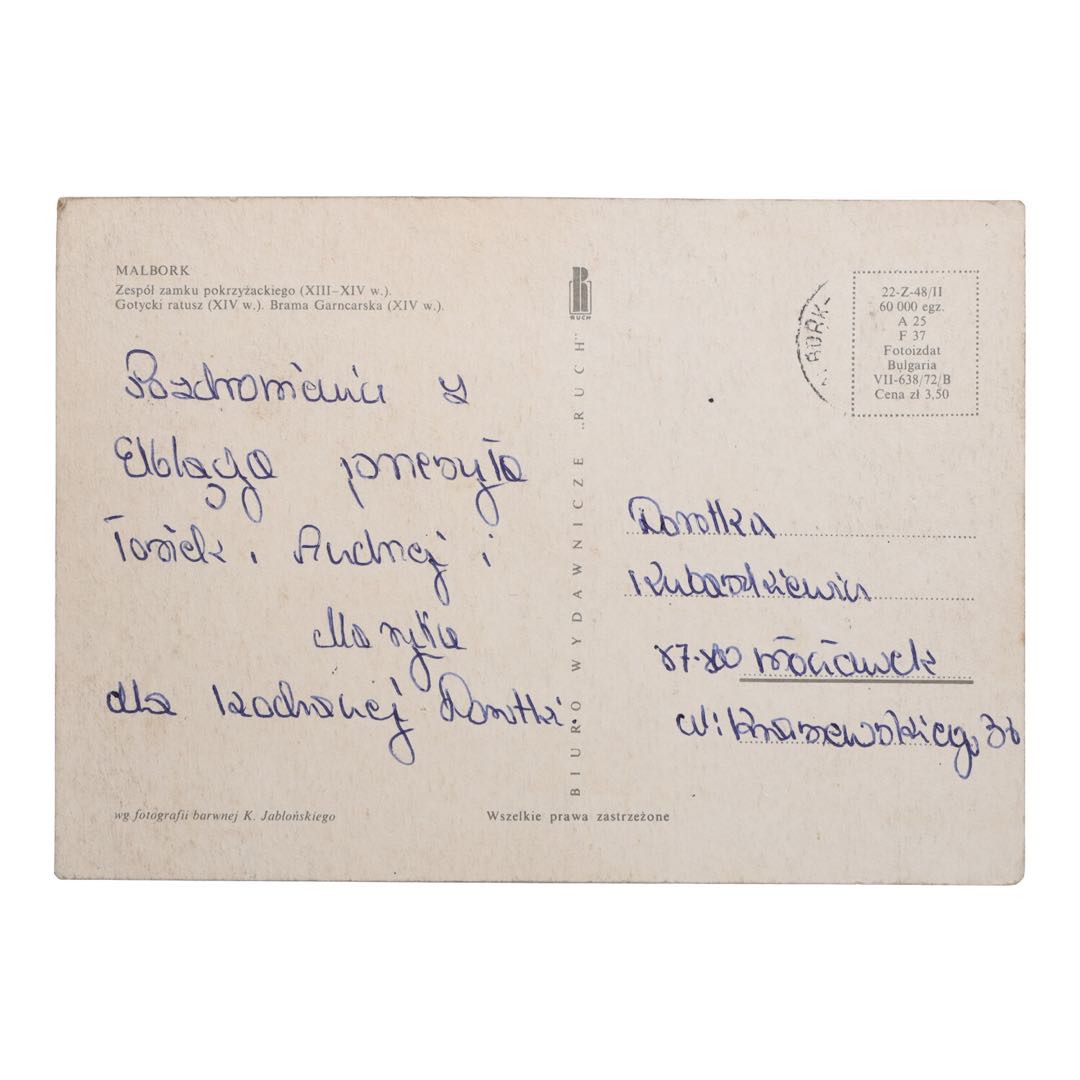 MALBORK
Zespół zamku pokrzyżackiego (XIII–XIV w.).
Gotycki ratusz (XIV w.). Brama Garncarska (XIV w.).
Pozdrowienia z
Elbląga przesyła
Andrzej i
Marylka
dla kochanej Dorotki.
wg fotografii barwnej K. Jabłońskiego
RUCH
BIURO WYDAWNICZE „RUCH”
Wszelkie prawa zastrzeżone
BORK-
22-Z-48/II
60 000 egz.
A 25
F 37
Fotoizdat
Bulgaria
VII-638/72/B
Cena zł 3,50
Dorotka
87-800 Włocławek
ul. Kraszewskiego